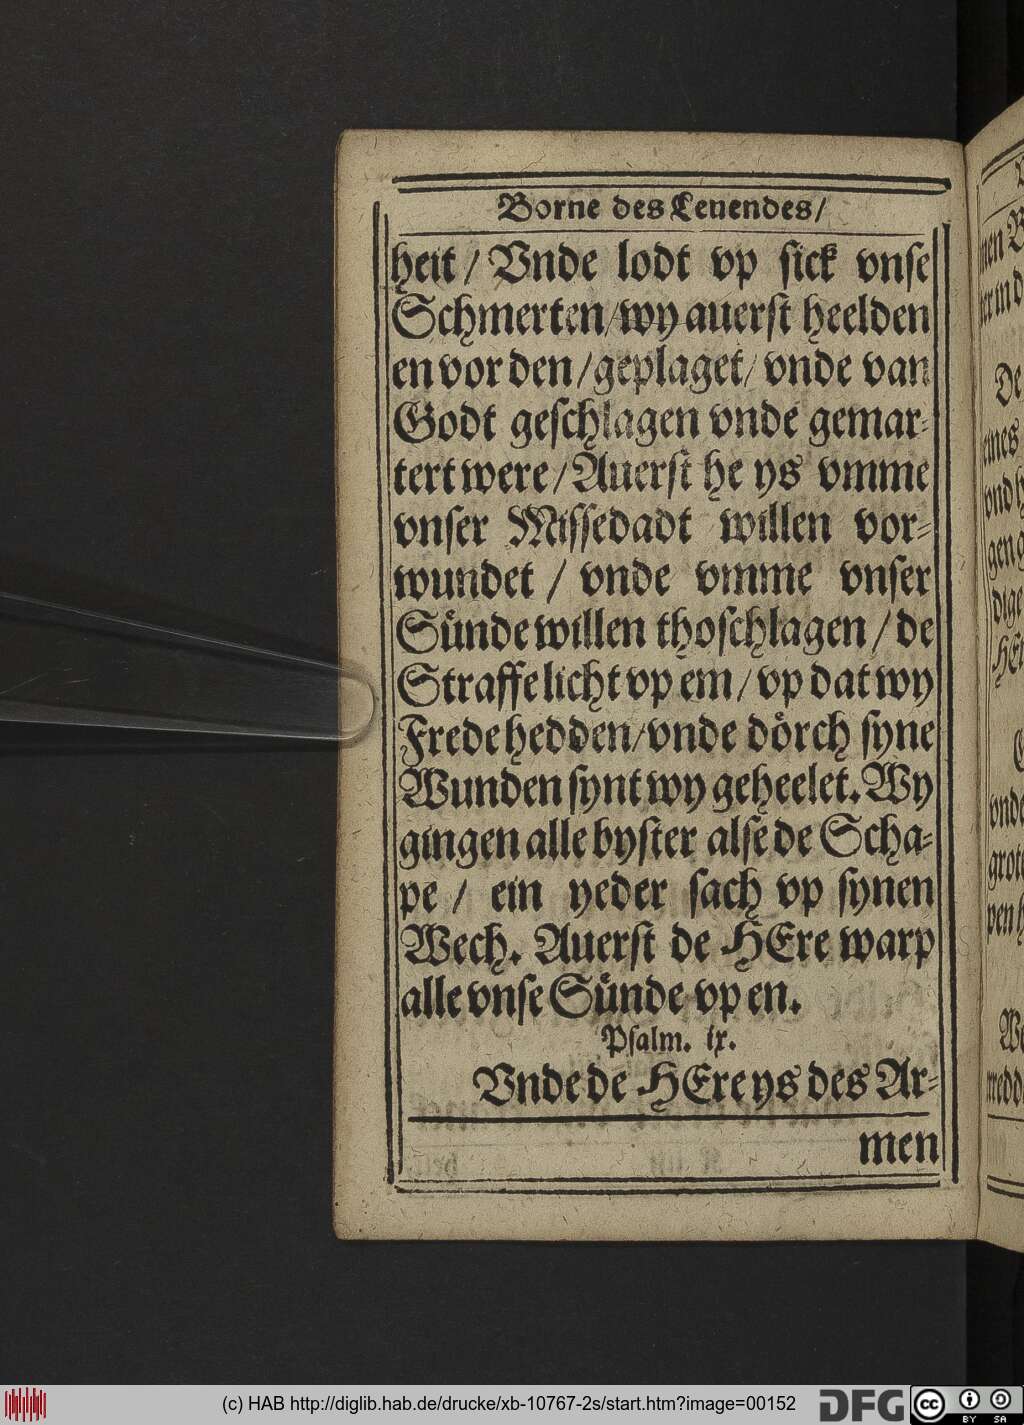 Borne des Leuendes/
heit / Vnde lodt vp sick vnse
Schmerten/wy auerst heelden
en vor den/geplaget/ vnde van
Godt geschlagen vnde gemar⸗
tert were/Auerst he ys vmme
vnser Missedadt willen vor⸗
wundet / vnde vmme vnser
Sünde willen thoschlagen/de
Straffe licht vp em/vp dat wy
Frede hedden/vnde dörch syne
Wunden synt wy geheelet. Wy
gingen alle byster alse de Scha⸗
pe / ein yeder sach vp synen
Wech. Auerst de HEre warp
alle vnse Sünde vp en.
Psalm. ix.
Vnde de HEre ys des Ar⸗
men
(c) HAB http://diglib.hab.de/drucke/xb-10767-2s/start.htm?image=00152
DFG
cc
BY SA